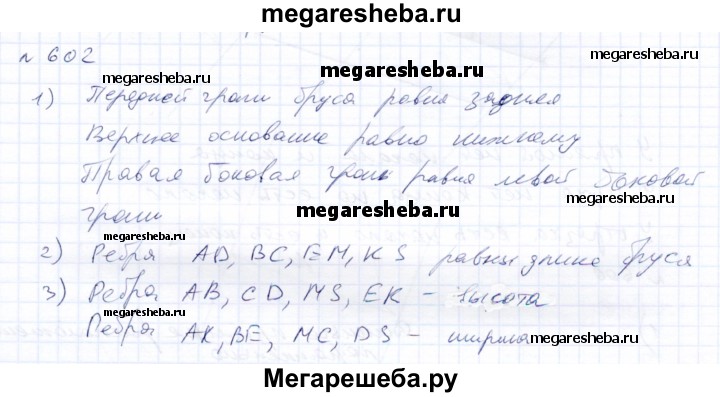 megaresheba.ru
№ 602
megaresheba.ru
megaresheba.ru
megaresheba.ru
1) Передней грани бруса равна задняя
megaresheba.ru
Верхнее основание равно нижнему
Правая боковая грань равна левой боковой
грани
megaresheba.ru
megaresheba.ru
2) Ребра AD, BC, EM, KS равны длине бруса
megaresheba.ru
3) Ребра AB, CD, MS, EK - высота
Ребра AK, BE, MC, DS - ширина
megaresheba.ru
Мегарешеба.ру